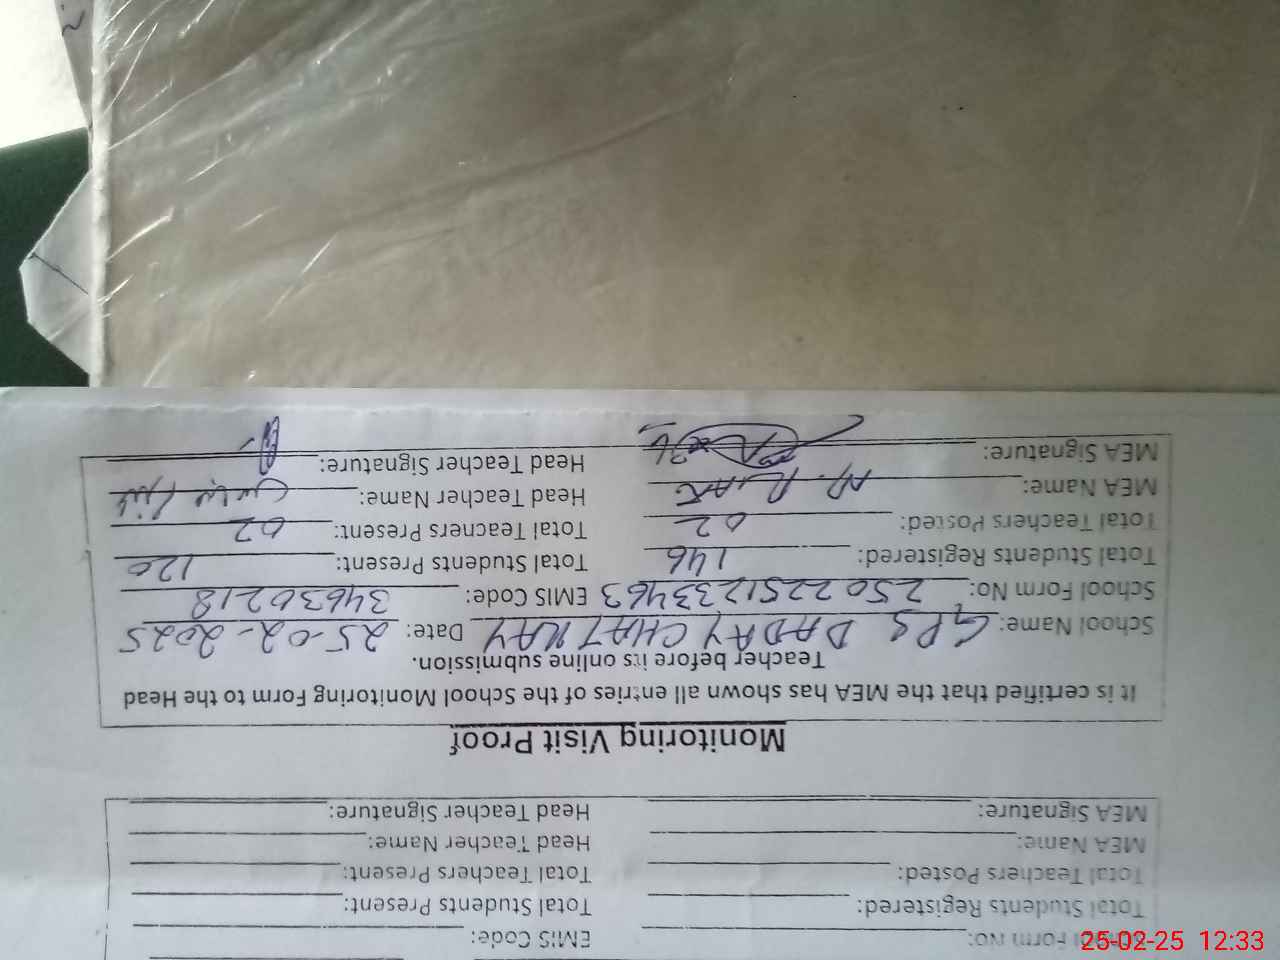 Monitoring Visit Proof
It is certified that the MEA has shown all entries of the School Monitoring Form to the Head
Teacher before its online submission.
School Name: GPS DADAY CHATKAY Date: 25-02-2025
School Form No: 2502251233463 EMIS Code: 34630218
Total Students Registered: 146 Total Students Present: 120
Total Teachers Posted: 02 Total Teachers Present: 02
MEA Name: M. RIAZ Head Teacher Name:
MEA Signature: Head Teacher Signature:
Form No: EMIS Code:
Total Students Registered: Total Students Present:
Total Teachers Posted: Total Teachers Present:
MEA Name: Head Teacher Name:
MEA Signature: Head Teacher Signature:
25-02-25 12:33